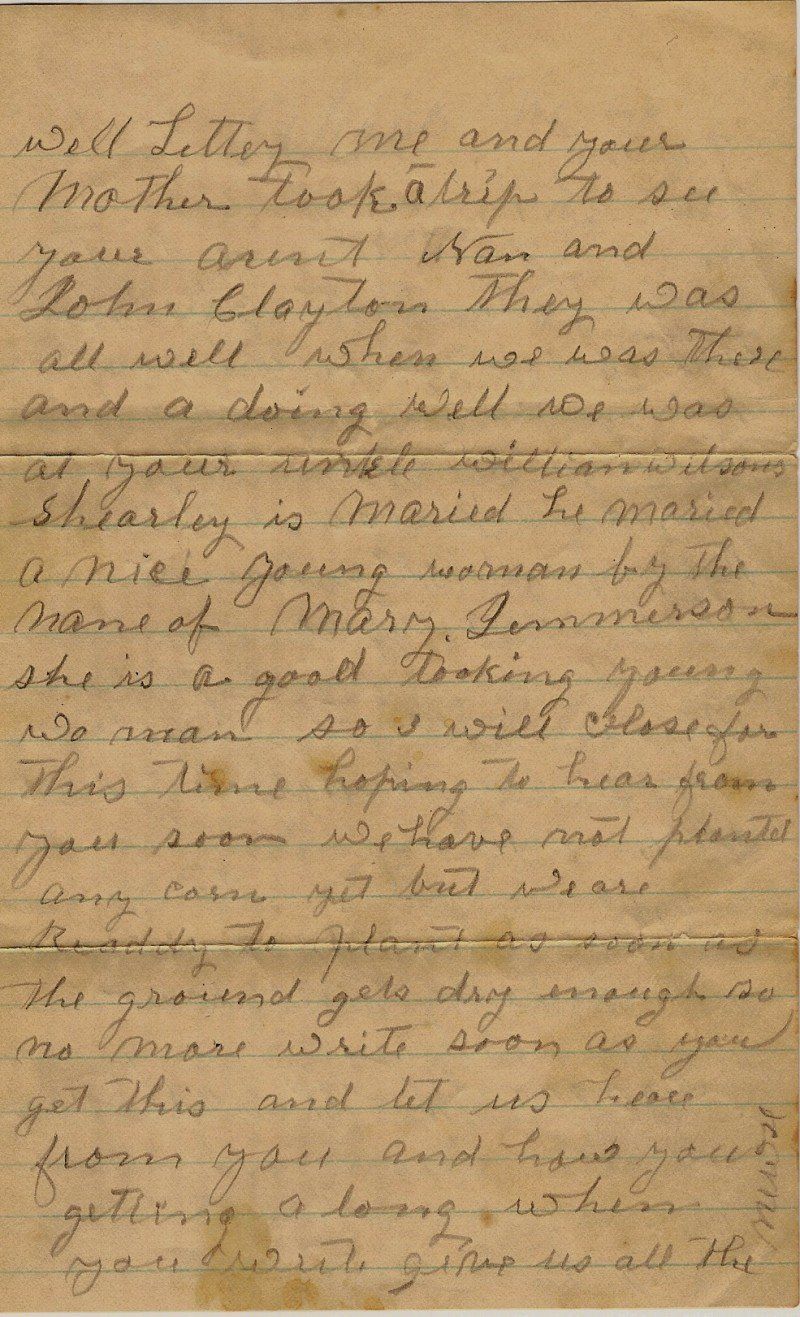 well Littey me and your
Mother took a trip to see
your arunt Nan and
John Clayton they was
all well when we was there
and a doing well we was
at your unkle willian wilsons
Shearley is Maried he maried
a nice young woman by the
nane of Mary. Jemmerson
she is a good looking young
wo man so i will close for
this time hoping to hear from
you soon we have not planted
any corn yet but we are
Readdy to plant as soon as
the ground gets dry enough so
no more write soon as you
get this and let us heare
from you and how you
getting a long when
you write give us all the
news